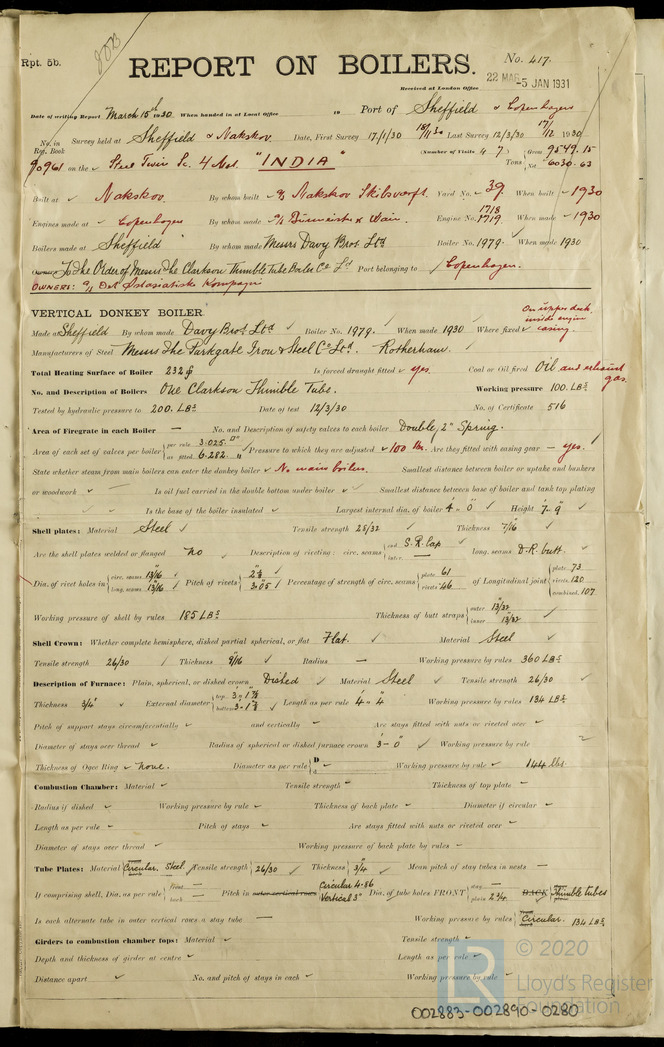 Rpt. 5b.
REPORT ON BOILERS.
No. 417.
Received at London Office 22 MAR -5 JAN 1931
Date of writing Report March 15th 1930 When handed in at Local Office 19 Port of Sheffield & Copenhagen
No. in Reg. Book Survey held at Sheffield & Nakskov Date, First Survey 17/1/30 Last Survey 12/3/30 17/12 1930
(Number of Visits 4 7) Gross 9549.15
90961 on the Steel Twin Sc. 4 Mst. "INDIA" Tons Net 6030.63
Built at Nakskov By whom built Nakskov Skibsværft Yard No. 39 When built 1930
Engines made at Copenhagen By whom made Burmeister & Wain Engine No. 1718 1719 When made 1930
Boilers made at Sheffield By whom made Messrs Davy Bros. Ltd Boiler No. 1979 When made 1930
To the Order of Messrs The Clarkson Thimble Tube Boiler Co. Ltd Port belonging to Copenhagen.
OWNERS: A/S Det Østasiatiske Kompagni
VERTICAL DONKEY BOILER.
On upper deck, inside engine casing.
Made at Sheffield By whom made Davy Bros. Ltd Boiler No. 1979. When made 1930 Where fixed
Manufacturers of Steel Messrs The Parkgate Iron & Steel Co. Ltd. Rotherham.
Total Heating Surface of Boiler 232 Is forced draught fitted yes. Coal or Oil fired Oil and exhaust gas.
No. and Description of Boilers One Clarkson Thimble Tube. Working pressure 100. LBS
Tested by hydraulic pressure to 200. LBS Date of test 12/3/30 No. of Certificate 516
Area of Firegrate in each Boiler — No. and Description of safety valves to each boiler Double, 2" Spring.
Area of each set of valves per boiler per rule 3.025 as fitted 6.282 Pressure to which they are adjusted 100 lbs. Are they fitted with easing gear — yes.
State whether steam from main boilers can enter the donkey boiler No main boilers. Smallest distance between boiler or uptake and bunkers
or woodwork Is oil fuel carried in the double bottom under boiler Smallest distance between base of boiler and tank top plating
Is the base of the boiler insulated Largest internal dia. of boiler 4'-0" Height 7'-9"
Shell plates: Material Steel Tensile strength 28/32 Thickness 7/16"
Are the shell plates welded or flanged No Description of riveting: circ. seams end S.R. lap inter. — long. seams D.R. butt.
Dia. of rivet holes in circ. seams 13/16 long. seams 13/16 Pitch of rivets 3.05 Percentage of strength of circ. seams plate 61 rivets 46 of Longitudinal joint plate 73 rivets 120 combined 107
Working pressure of shell by rules 185 LBS Thickness of butt straps outer 13/32 inner 13/32
Shell Crown: Whether complete hemisphere, dished partial spherical, or flat Flat. Material Steel
Tensile strength 26/30 Thickness 9/16 Radius — Working pressure by rules 360 LBS
Description of Furnace: Plain, spherical, or dished crown Dished Material Steel Tensile strength 26/30
Thickness 3/4" External diameter top 3'-1 7/8 bottom 3'-1 7/8 Length as per rule 4'-4" Working pressure by rules 134 LBS
Pitch of support stays circumferentially and vertically Are stays fitted with nuts or riveted over
Diameter of stays over thread Radius of spherical or dished furnace crown 3'-0" Working pressure by rule
Thickness of Ogee Ring None. Diameter as per rule D d Working pressure by rule 144 lbs.
Combustion Chamber: Material Tensile strength Thickness of top plate
Radius if dished Working pressure by rule Thickness of back plate Diameter if circular
Length as per rule Pitch of stays Are stays fitted with nuts or riveted over
Diameter of stays over thread Working pressure of back plate by rules
Tube Plates: Material Circular. Steel Tensile strength 26/30 Thickness 3/4" Mean pitch of stay tubes in nests —
If comprising shell, Dia. as per rule front — back — Pitch in outer vertical rows Circular 4.86 Vertical 3" Dia. of tube holes FRONT stay — plain 2 1/4 BACK Thimble tubes
Is each alternate tube in outer vertical rows a stay tube — Working pressure by rules Circular. 134 LBS
Girders to combustion chamber tops: Material Tensile strength
Depth and thickness of girder at centre Length as per rule
Distance apart No. and pitch of stays in each Working pressure by rule
LR © 2020
Lloyd's Register
Foundation
002883-002890-0280